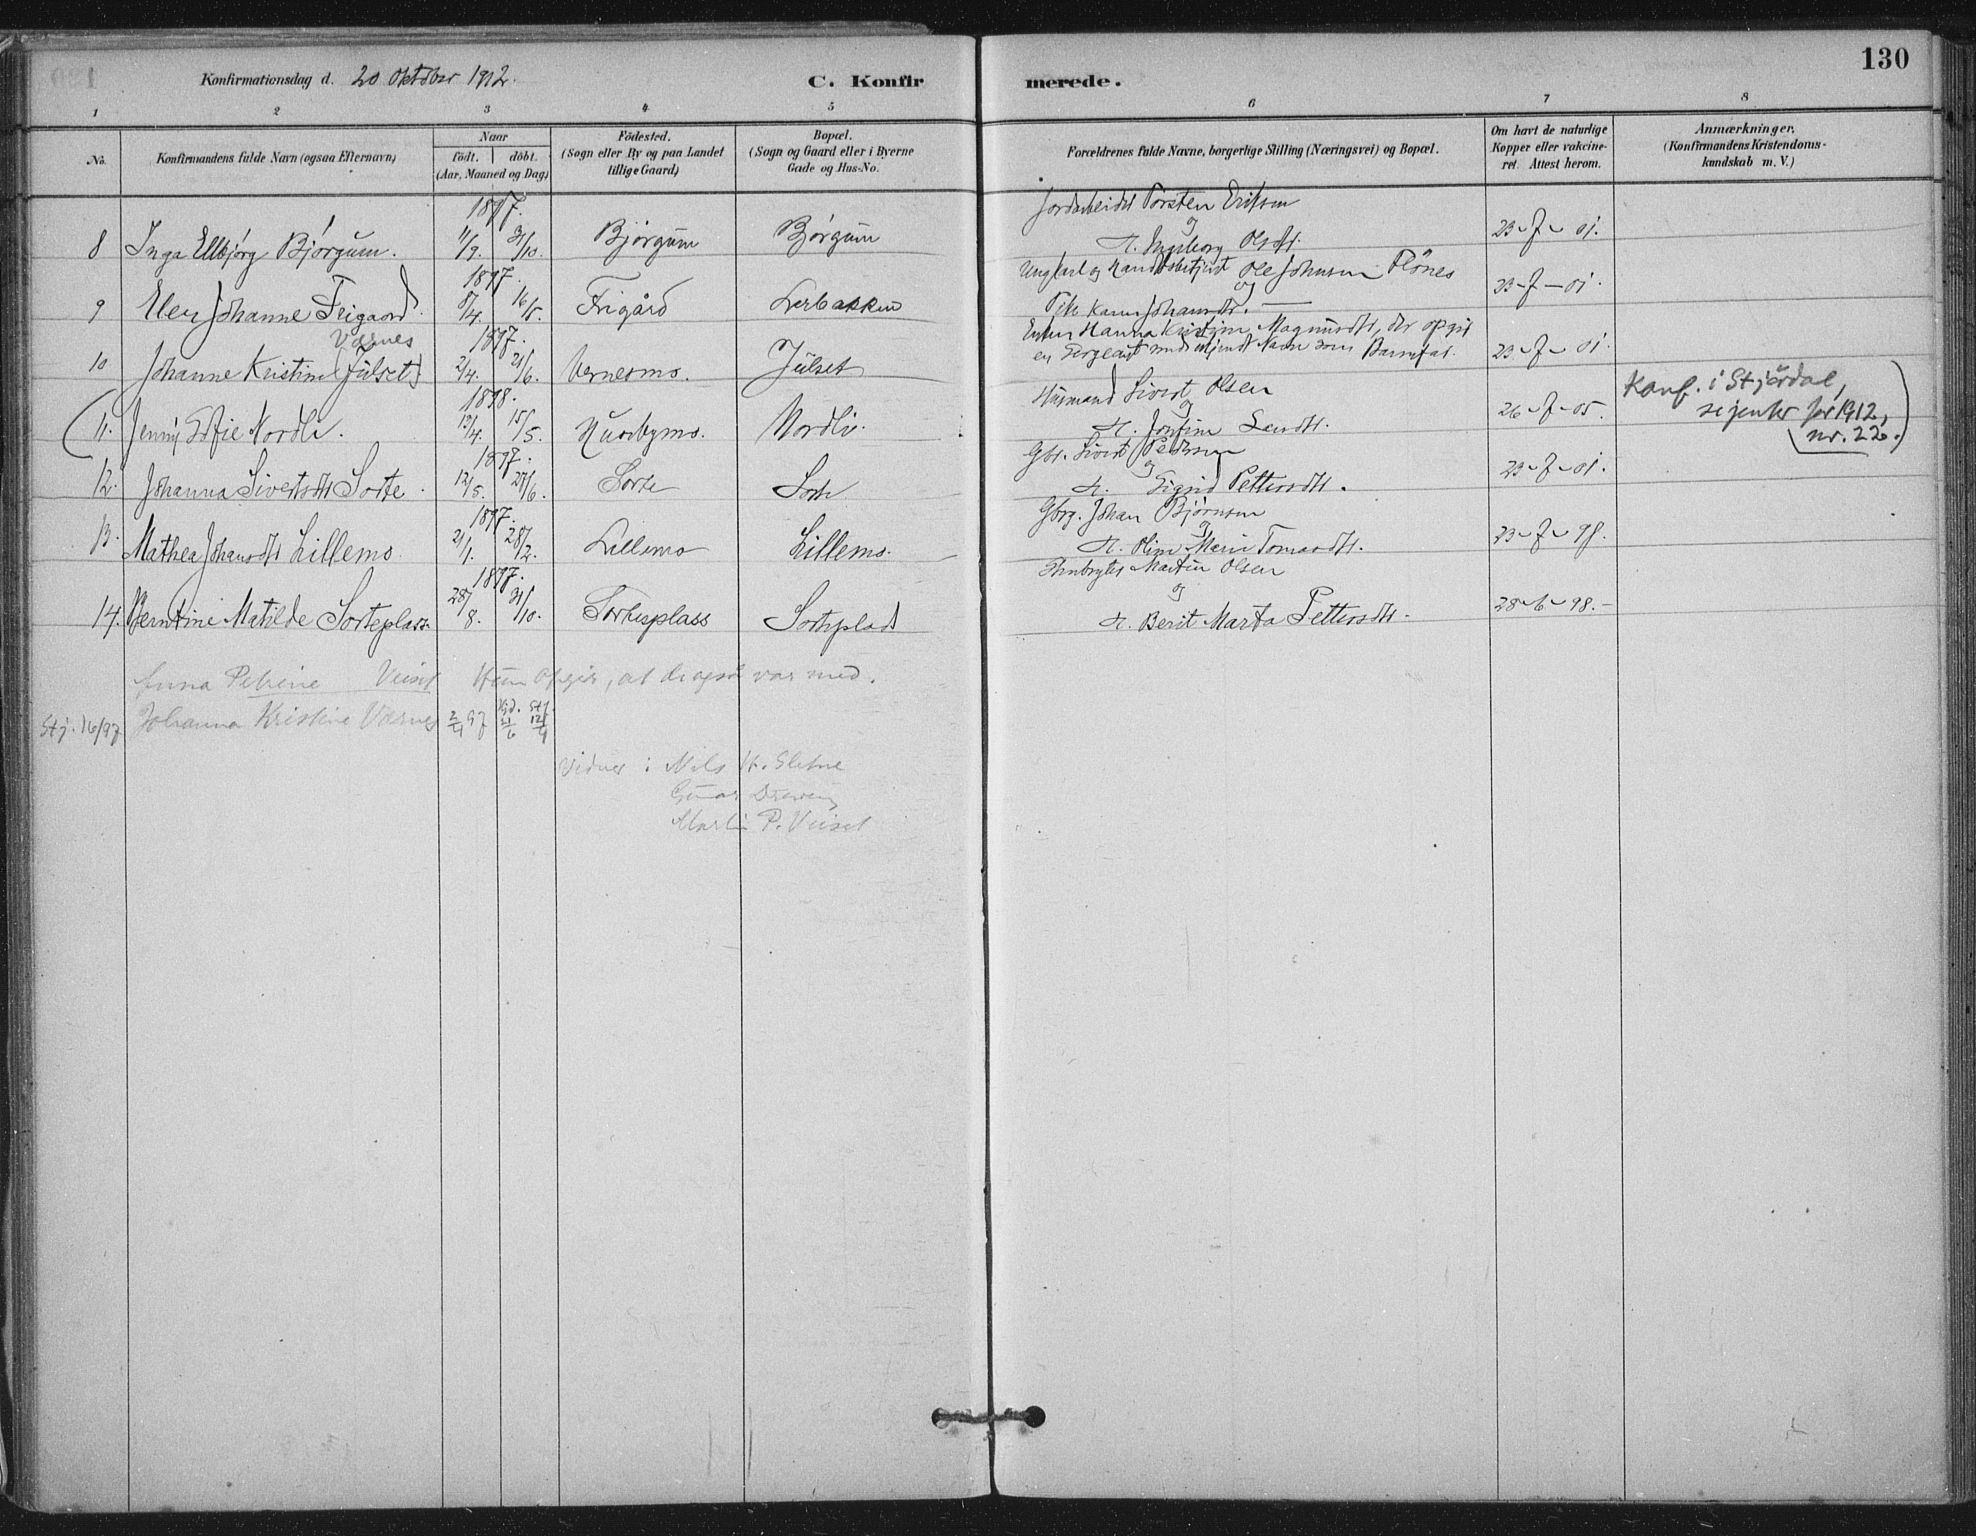 130
Konfirmationsdag d. 20 Oktober 1912. C. Konfirmerede.
1 2 3 4 5 6 7 8
No. Konfirmandens fulde Navn (ogsaa Efternavn) Naar födt. döbt. (Aar, Maaned og Dag) Födested. (Sogn eller By og paa Landet tillige Gaard) Bopæl. (Sogn og Gaard eller i Byerne Gade og Hus-No. Forældrenes fulde Navne, borgerlige Stilling (Næringsvei) og Bopæl. Om havt de naturlige Kopper eller vakcineret. Attest herom. Anmærkninger. (Konfirmandens Kristendomskundskab m. V.)
1897. Jordarbeider Torsten Eriksen
8 Inga Elbjørg Bjørgum. 11/9. 31/10. Bjørgum Bjørgum og H. Ingeborg Olsdt. 23-7-01.
1897. Ungkarl og Ole Johnsen Flönes
9 Johanne Frigaard. 8/4. 16/5. Frigård Lerbakken og Pike Johansdt. 23-7-01.
Værnes 1897. Enken Hanna Kristine Magnusdt, der opgir
10 Johanne Kristine (Julset) 2/4. 21/6. Vernesmo. Julset en Sergeant med Navn som Barnefar. 23-7-01.
1898. Husmand Sivert Olsen
(11. Jenny Sofie Nordli. 13/4. 15/5. Husbymo. Nordli. og H. Jonsine Larsdt. 26-7-05. Konf. i Stjørdal, se jenter for 1912, nr. 22.)
1897. Gbr. Sivert Pedersen
12. Johanna Sivertsdt Sorte. 12/5. 27/6. Sorte Sorte og H. Sigrid Pettersdt. 23-7-01.
1897. Gbrg. Johan Bjørnsen
13. Mathea Johansdt Lillemo. 21/1. 28/2. Lillemo Lillemo. og H. Oline Marie Tomasdt. 23-7-98.
1897. Martin Olsen
14. Berntine Matilde Sorteplass. 28/8. 31/10. Sorteplass Sorteplads og H. Berit Marta Pettersdt. 28-6-98.
Anna Petrine Veiset Hun opgir, at de også var med.
Stj. 16/97 Johanna Kristine Værnes 2/4 97 21/6 Stj. 12/4
Vidner: Nils H. Sletne
Gunar
Martin P. Veiset